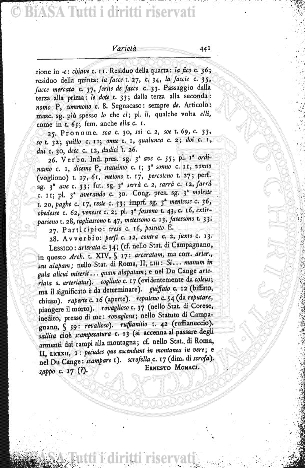 © BIASA Tutti i diritti riservati
Varietà 441
zione io -c: cojavo c. 11. Residuo della quarta: la fico c. 36;
residuo della quinta: la facce l. 27, c. 34, la faccie c. 35,
facco mercato c. 37, forte de facco c. 33. Passaggio dalla
terza alla prima: le dote c. 33; dalla terza alla seconda:
nomo P, timmono c. 8. Segnacaso: sempre de. Articolo:
masc. sg. più spesso lo che el; pl. li, qualche volta elli,
come in c. 63; fem. anche ella c. 1.
25. Pronome. soa c. 30, soi c. 2, soe l. 69, c. 33,
so c. 32; quillo c. 11; onne c. 1, qualunca c. 2; doi c. 1,
dui c. 30, dote c. 12, dudici l. 26.
26. Verbo. Ind. pres. sg. 3ª ave c. 35, pl. 1ª ordi-
namo c. 1, dicemo P, statuimo c. 1; 3ª sonno c. 11, vonno
(vogliono) l. 27, 61, metono l. 17, percutono l. 27; perf.
sg. 3ª ave c. 33; fut. sg. 3ª serrà c. 2, sarrà c. 12, farrà
c. 11; pl. 3ª averando c. 30. Cong. pres. sg. 3ª volesse
l. 20, paghe c. 17, reste c. 53; impf. sg. 3ª menasse c. 36,
obedesse c. 62, venesse c. 2; pl. 3ª fossono l. 43, c. 16,
partesse l. 28, togliassono l. 47, mitessono c. 13, facessono l. 53.
27. Participio: tress c. 16, possuto E.
28. Avverbio: perfì c. 12, contra c. 2, janno c. 13.
Lessico: arterata c. 34; (cf. nello Stat. di Campagnano,
in questo Arch. t. XIV, § 17: arteratam, ma contr. alter.,
seu alapam; nello Stat. di Roma, II, LIII: Si... manum in
gula alicui miserit... quam alapatam; e nel Du Cange arte-
riata s. arteriatus). cogliuto c. 17 (evidentemente da colere;
ma il significato è da determinare). guffato c. 12 (biffato,
chiuso). raperto c. 16 (aperto). reputare c. 54 (da reputare,
piangere il morto). revagliare c. 37 (nello Stat. di Corese,
inedito, presso di me: revagliare; nello Statuto di Campa-
gnano, § 59: revalieo). ruffianitia c. 42 (ruffianeccio).
salito cioè stampentura c. 13 (si accenna al passare degli
armenti dai campi alla montagna; cf. nello Stat. di Roma,
II, LXXXII, 1: pecudes que ascendunt in montana in vere; e
nel Du Cange: stampare 1). scrofella c. 17 (dim. di scrofa).
zappo c. 27 (?). Ernesto Monaci.
© BIASA Tutti i diritti riservati